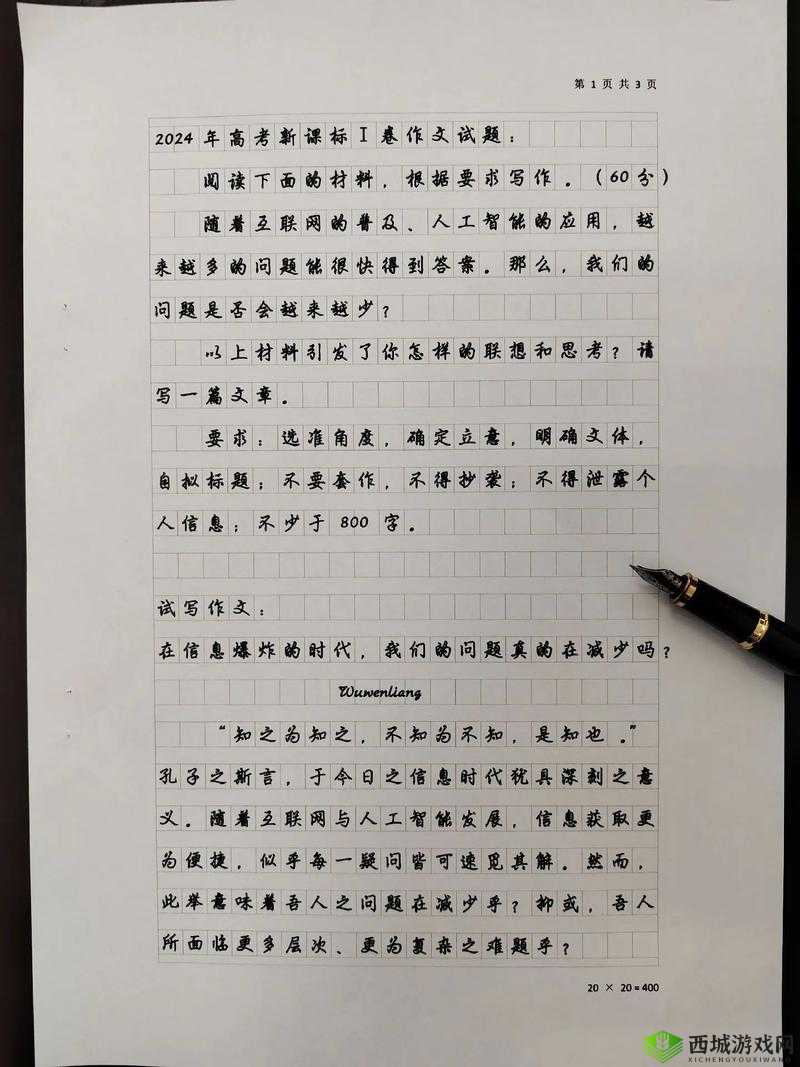 第 1 页 共 3 页
2024 年高考新课标 I 卷作文试题：
阅读下面的材料，根据要求写作。（60分）
随着互联网的普及、人工智能的应用，越
来越多的问题能很快得到答案。那么，我们的
问题是否会越来越少？
以上材料引发了你怎样的联想和思考？请
写一篇文章。
要求：选准角度，确定立意，明确文体，
自拟标题；不要套作，不得抄袭；不得泄露个
人信息；不少于 800 字。
试写作文：
在信息爆炸的时代，我们的问题真的在减少吗？
Wuwenliang
“知之为知之，不知为不知，是知也。”
孔子之斯言，于今日之信息时代犹具深刻之意
义。随着互联网与人工智能发展，信息获取更
为便捷，似乎每一疑问皆可速觅其解。然而，
此举意味着吾人之问题在减少乎？抑或，吾人
所面临更多层次、更为复杂之难题乎？
20 × 20 = 400
西城游戏网
XICHENGYOUXIWANG